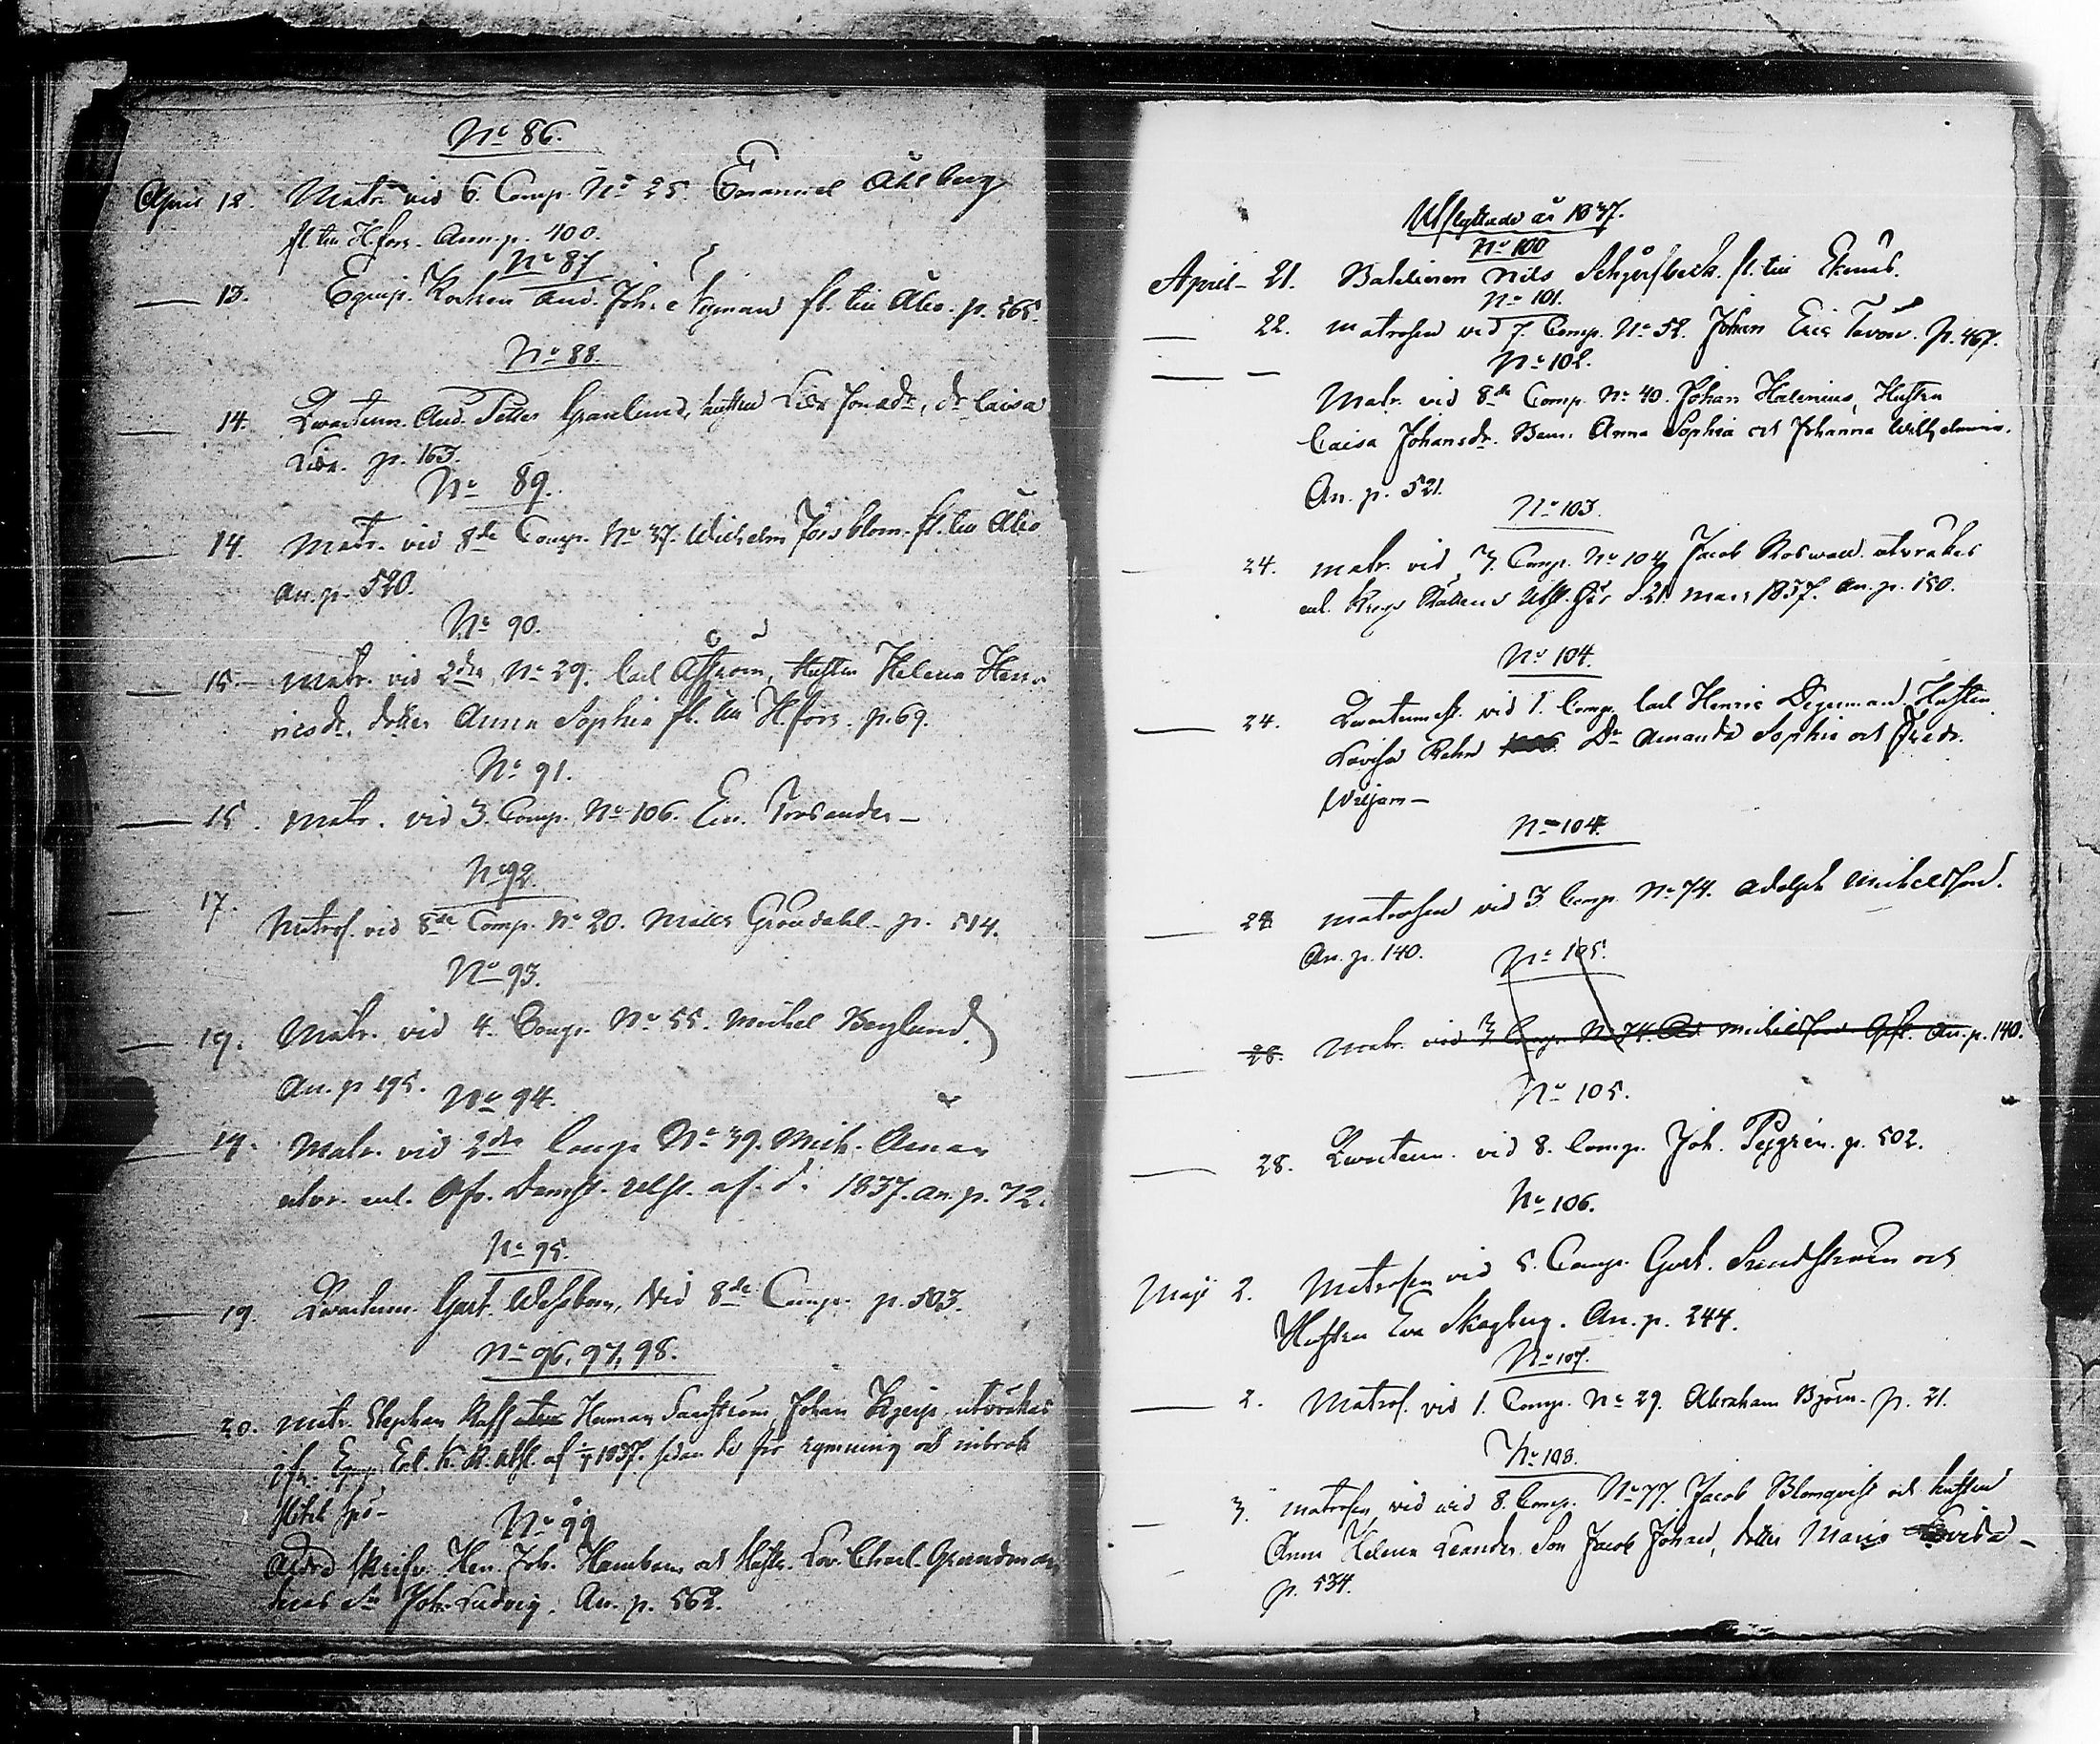 No 86.
April 12. Matr. vid 6. Comp. No 25. Emanuel Åhlberg
fl. till H.fors. Ann. p. 400.
No 87
— 13. Equip. Kocken And. Joh. Nyman fl. till Åbo. p. 565.
No 88.
— 14. Qvarterm. And. Petter Granlund, hustru Lisa Jonasdr, dr Caisa
Lisa. p. 163.
No 89.
— 14. Matr. vid 8de Comp. No 37. Wilhelm Forsblom fl. till Åbo
An. p. 520.
No 90.
— 15 — Matr. vid 2dra No 29. Carl Åström, Hustru Helena Hen-
ricsdr, dotter Anna Sophia fl. till H.fors. p. 69.
No 91.
— 15. Matr. vid 3. Comp. No 106. Em. Torsander —
No 92.
— 17. Matros. vid 8de Comp. No 20. Matts Gröndahl. p. 514.
No 93.
— 19. Matr. vid 4. Comp. No 55. Michel Berglund
An. p 195.
No 94.
— 19. Matr. vid 2dra Comp No 39. Mich. Åman
utvr. enl. 1837. An. p. 72.
No 95.
— 19. Qvarterm. Gust. Vid 8de Comp. p. 503.
No 96, 97, 98.
— 20. Matr. Stephan Herman Sandström, Johan utvräkas
1837. sedan de för rymning och inbrott
No 99
Herr Joh. och Hustr. Lov. Charl. Grundman
deras Son Joh. Ludvig. An. p. 562.
Utflyttade år 1837.
No 100
April — 21. Nils Schjerfbeck. fl. till Ekenäs.
No 101.
— 22. Matrosen vid 7. Comp. No 52. Johan Eric p. 467.
No 102.
— — Matr. vid 8de Comp. No 40. Johan Halenius, Hustru
Caisa Johansdr. Barn: Anna Sophia och Johanna Wilhelmina.
An. p. 521.
No 103.
— 24. Matr. vid 3. Comp. No 104 Jacob Roswall utvräkes
enl. Krigs Rättens Utsl. d. 21 Mars 1837. An. p. 150.
No 104.
— 24. Qvartermst. vid 1. Comp. Carl Henric Degerman, Hustru
Lovisa Rehn Dr Amanda Sophia och Fredr.
Wiljam —
No 104.
— 28 Matrosen vid 3. Comp. No 74. Adolph Michelsson.
An. p. 140.
No 105.
— 28. Matr. vid 3 Comp. No 74. Ad. Michelsson An. p. 140.
No 105.
— 28. Qvarterm. vid 8. Comp. Joh. p. 502.
No 106.
Maji 2. Matrosen vid 5. Comp. Gust. Sundström och
Hustru Eva Skogberg. An. p. 244.
No 107.
— 2. Matros. vid 1. Comp. No 29. Abraham Björn. p. 21.
No 108.
— 3. Matrosen vid vid 8. Comp. No 77. Jacob Blomqvist och hustru
Anna Helena Leander. Son Jacob Johan, dotter Maria Lovisa —
p. 534.